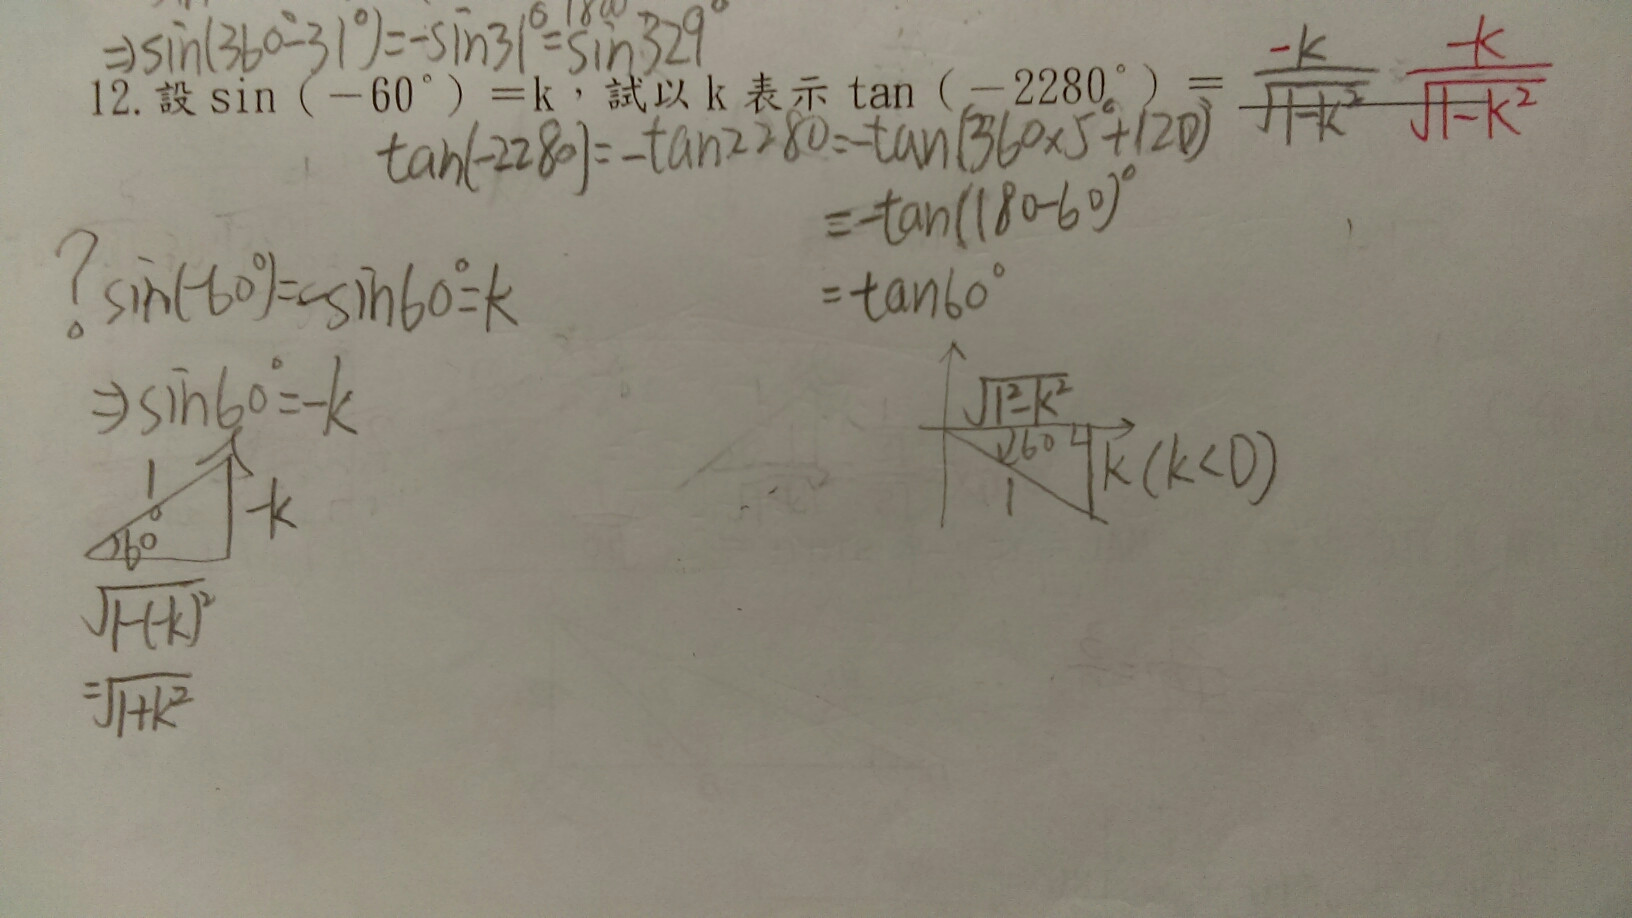 ⇒sin(360°-31°)=-sin31°=sin329°
12. 設 sin（－60°）＝k，試以 k 表示 tan（－2280°）＝ -k/√1-k² -k/√1-k²
tan(-2280)=-tan2280=-tan(360×5+120)°
=-tan(180-60)°
? sin(-60°)=-sin60°=k
=tan60°
⇒sin60°=-k
√1²-k²
60
1
k(k<0)
1
-k
60°
√1-(-k)²
=√1+k²